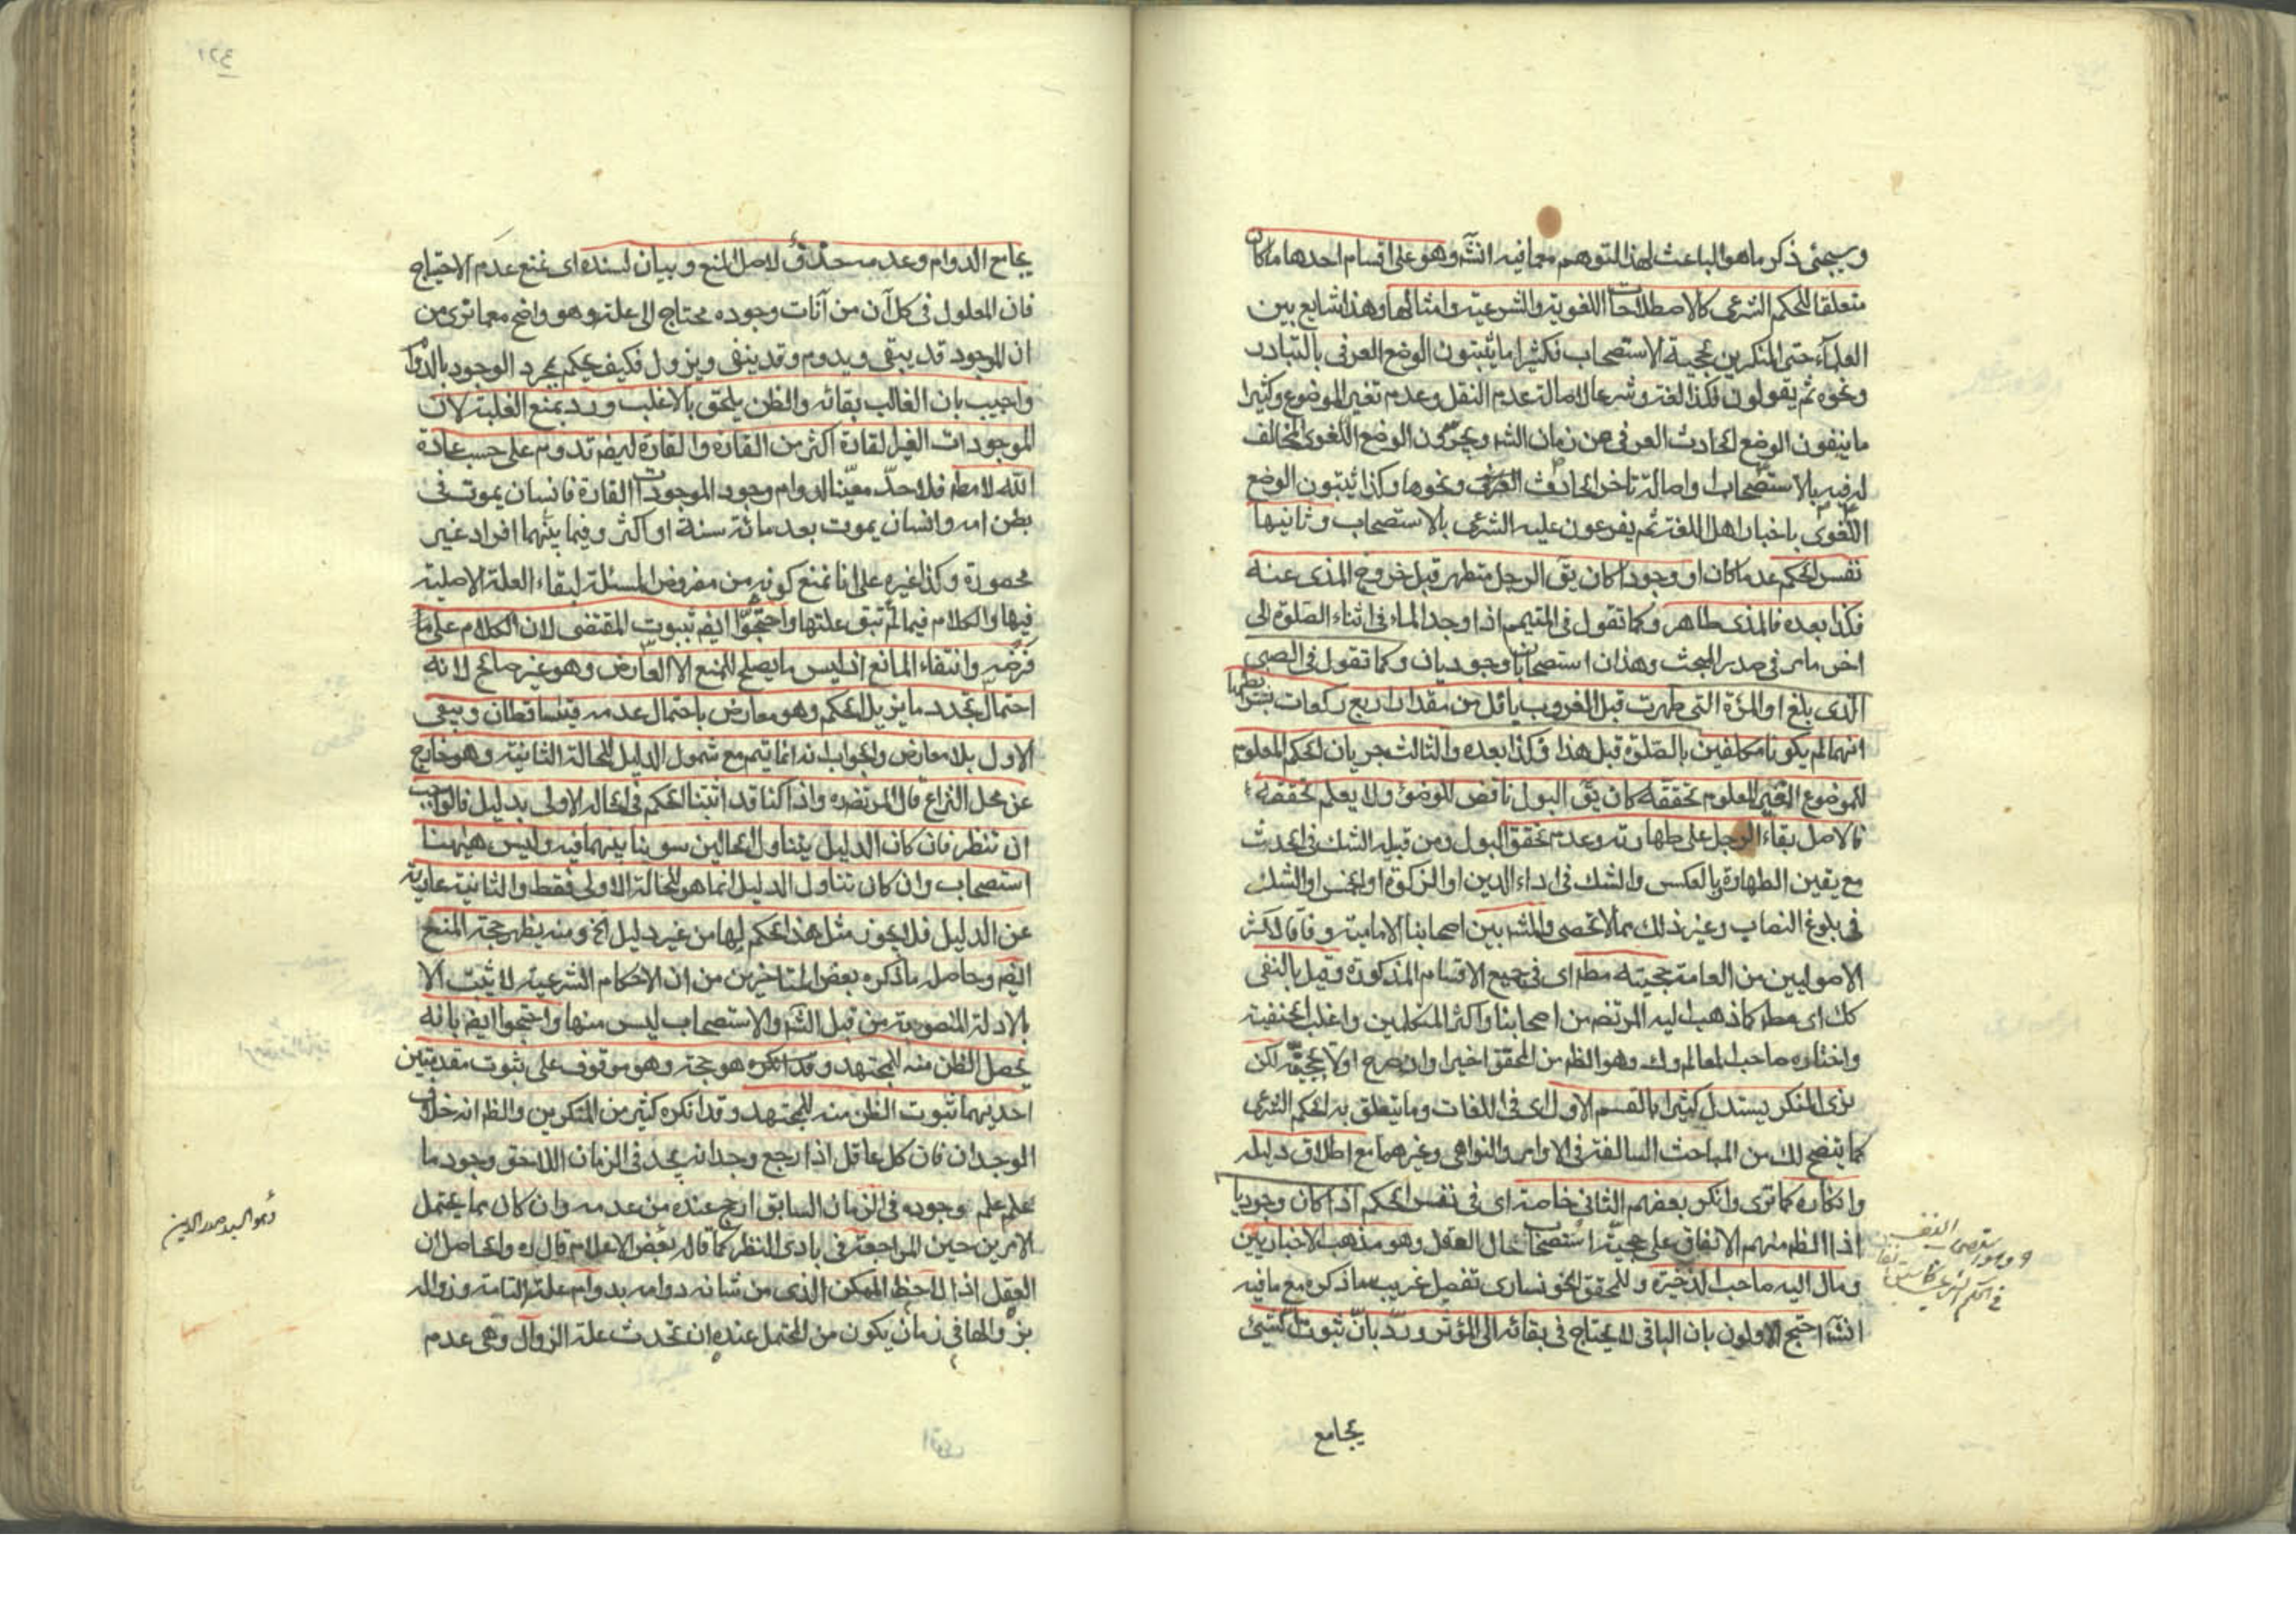 وسيجئ ذكر ماهو الباعث لهذا التوهم مع مافيه انشآ وهو على اقسام احدها ماكان
متعلقا للحكم الشرعى كالاصطلاحات اللغوية والشرعية وامثالها وهذا شايع بين
العلمآء حتى المنكرين بحجية الاستصحاب فكثيرا مايثبتون الوضع العرفى بالتبادر
ونحوه ثم يقولون فكذا لغة وشرعا لاصالة عدم النقل وعدم تغير الموضوع وكثيرا
ماينفون الوضع الحادث العرفى عن زمان الشه ويجرون الوضع اللغوى المخالف
له فيه بالاستصحاب واصالة تاخر الحادث العرفى ونحوها وكذا يثبتون الوضع
اللغوى باخبار اهل اللغة ثم يفرعون عليه الشرعى بالاستصحاب وثانيها
نفس الحكم عدما كان او وجودا كان يق الرجل متطهر قبل خروج المذى عنه
فكذا بعده فالمذى طاهر وكما تقول فى المتيمم اذا وجد الماء فى اثناء الصلوة الى
اخر مامر فى صدر المبحث وهذان استصحابان وجوديان وكما تقول فى الصبى
الذى بلغ او المرءة التى طهرت قبل الغروب باقل من مقدار اربع ركعات
انهما لم يكونا مكلفين بالصلوة قبل هذا فكذا بعده والثالث جريان الحكم المعلوم
للموضوع الغير المعلوم تحققه كان يق البول ناقض للوضوء ولا يعلم تحققه
فالاصل بقاء الرجل على طهارته وعدم تحقق البول ومن قبله الشك فى الحدث
مع يقين الطهارة وبالعكس والشك فى اداء الدين او الزكوة او الخمس او الشك
فى بلوغ النصاب وغير ذلك مما لا تحصى والمشه بين اصحابنا الامامية وفاقا لاكثر
الاصوليين من العامة حجيته مطه اى فى جميع الاقسام المذكورة وقيل بالنفى
كك اى مطه كما ذهب اليه المرتضى من اصحابنا واكثر المتكلمين واغلب الحنفية
واختاره صاحب المعالم وك وهو الظه من المحقق اخيرا وان صرح اولا بحجيته لكن
نرى المنكر يستدل كثيرا بالقسم الاول اى فى اللغات وما يتعلق به الحكم الشرعى
كما يتضح لك من المباحث السالفة فى الاوامر والنواهى وغيرهما مع اطلاق دليله
وانكاره كما ترى وانكر بعضهم الثانى خاصة اى فى نفس الحكم اذا كان وجوديا
اذ الظه منهم الاتفاق على حجية استصحاب حال العقل وهو مذهب الاخباريين
ومال اليه صاحب الذخيرة وللمحقق الخونسارى تفصيل غريب سنذكره مع مافيه
انشآ احتج الاولون بان الباقى لا يحتاج فى بقائه الى المؤثر ورد بان ثبوت الشئ
يجامع
يجامع الدوام وعدمه لاصل المنع وبيان لسنده اى نمنع عدم الاحتياج
فان المعلول فى كل آن من آنات وجوده محتاج الى علته وهو واضح مع ما ترى من
ان الموجود قد يبقى ويدوم وقد ينفى ويزول فكيف يحكم بمجرد الوجود بالدوام
واجيب بان الغالب بقائه والظن يلحق بالاغلب ورد بمنع الغلبة لان
الموجودات الغير القارة اكثر من القارة والقارة ايضه تدوم على حسب عادة
الله لا مطه فلا حد معينا لدوام وجود الموجودات القارة فانسان يموت فى
بطن امه وانسان يموت بعد مائة سنة او اكثر وفيما بينهما افراد غير
محصورة وكذا غيره على انا نمنع كونه من مفروض المسئلة لبقاء العلة الاصلية
فيها والكلام فيما لم تبق علتها واحتجوا ايضه بثبوت المقتضى لان الكلام على ما
فرض وانتفاء المانع اذ ليس مايصلح للمنع الا العارض وهو غير صالح لانه
احتمال تجدد ما يزيل الحكم وهو معارض باحتمال عدمه فيتساقطان ويبقى
الاول بلا معارض والجواب انه انما يتم مع شمول الدليل للحالة الثانية وهو خارج
عن محل النزاع قال المرتضى ره واذا كنا قد اثبتنا الحكم فى الحالة الاولى بدليل فالواجب
ان ننظر فان كان الدليل يتناول الحالين سوينا بينهما فيه وليس هيهنا
استصحاب وان كان تناول الدليل انما هو للحالة الاولى فقط والثانية عارية
عن الدليل فلا يجوز مثل هذا الحكم لها من غير دليل الخ ومنه يظهر حجة المنع
ايضه وحاصله ماذكره بعض المتاخرين من ان الاحكام الشرعية لا يثبت الا
بالادلة المنصوبة من قبل الشه والاستصحاب ليس منها واحتجوا ايضه بانه
يحصل الظن منه للمجتهد وهو حجة وهو موقوف على ثبوت مقدمتين
احديهما ثبوت الظن منه للمجتهد وقد انكره كثير من المنكرين والظه انه خلاف
الوجدان فان كل عاقل اذا رجع وجدانه يجد فى الزمان اللاحق وجود ما
علم وجوده فى الزمان السابق ارجح عنده من عدمه وان كان مما يحتمل
الامرين حين المراجعة فى بادى النظر كما قاله بعض الاعلام قال ره والحاصل ان
العقل اذا لاحظ الممكن الذى من شانه دوامه بدوام علته التامة وزواله
بزوالها فى زمان يكون من المحتمل عنده ان تحدث علة الزوال وهى عدم
وهو السيد صدر الدين